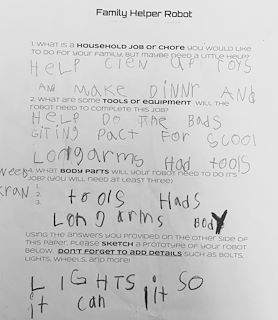 Family Helper Robot
1. What is a household job or chore you would like
to do for your family, but maybe need a little help?
HELP ClEN UP TOYS
AND MAKE DINNR AND
2. What are some tools or equipment will the
robot need to complete this job?
HELP DO THE BADS
GITING PACT FOR SCOOl
LONg arms Had tools
4. What body parts will your robot need to do its
job? (You will need at least three)
1.
2.
3.
tools Hads
LONg arms BODY
Using the answers you provided on the other side of
this paper, please sketch a prototype of your robot
below. Don't forget to add details such as bolts,
lights, wheels, and more!
LIGHTS SO
it can lit it